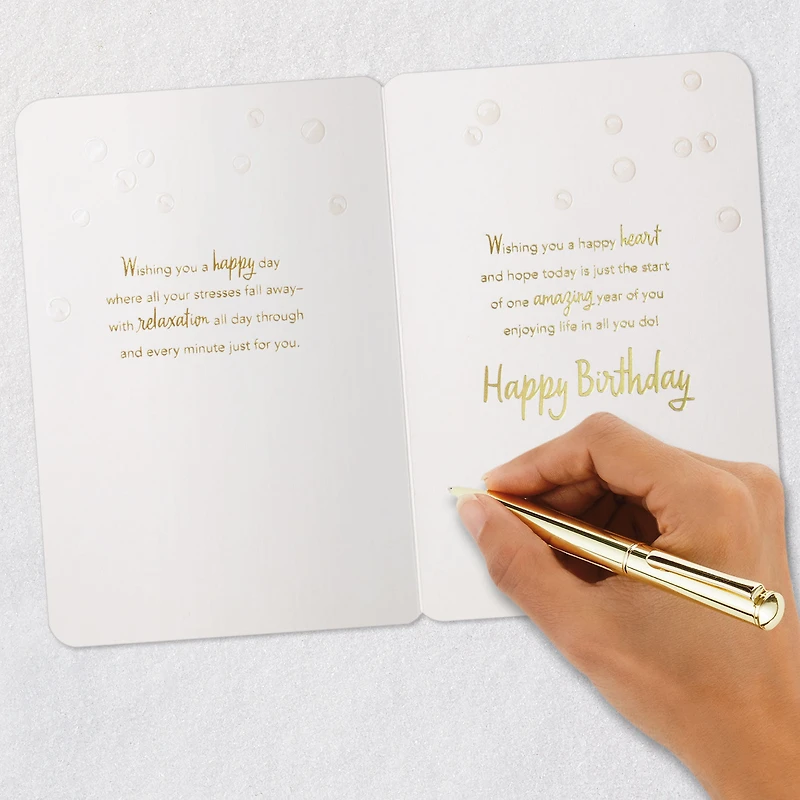 Wishing you a happy day
where all your stresses fall away–
with relaxation all day through
and every minute just for you.
Wishing you a happy heart
and hope today is just the start
of one amazing year of you
enjoying life in all you do!
Happy Birthday